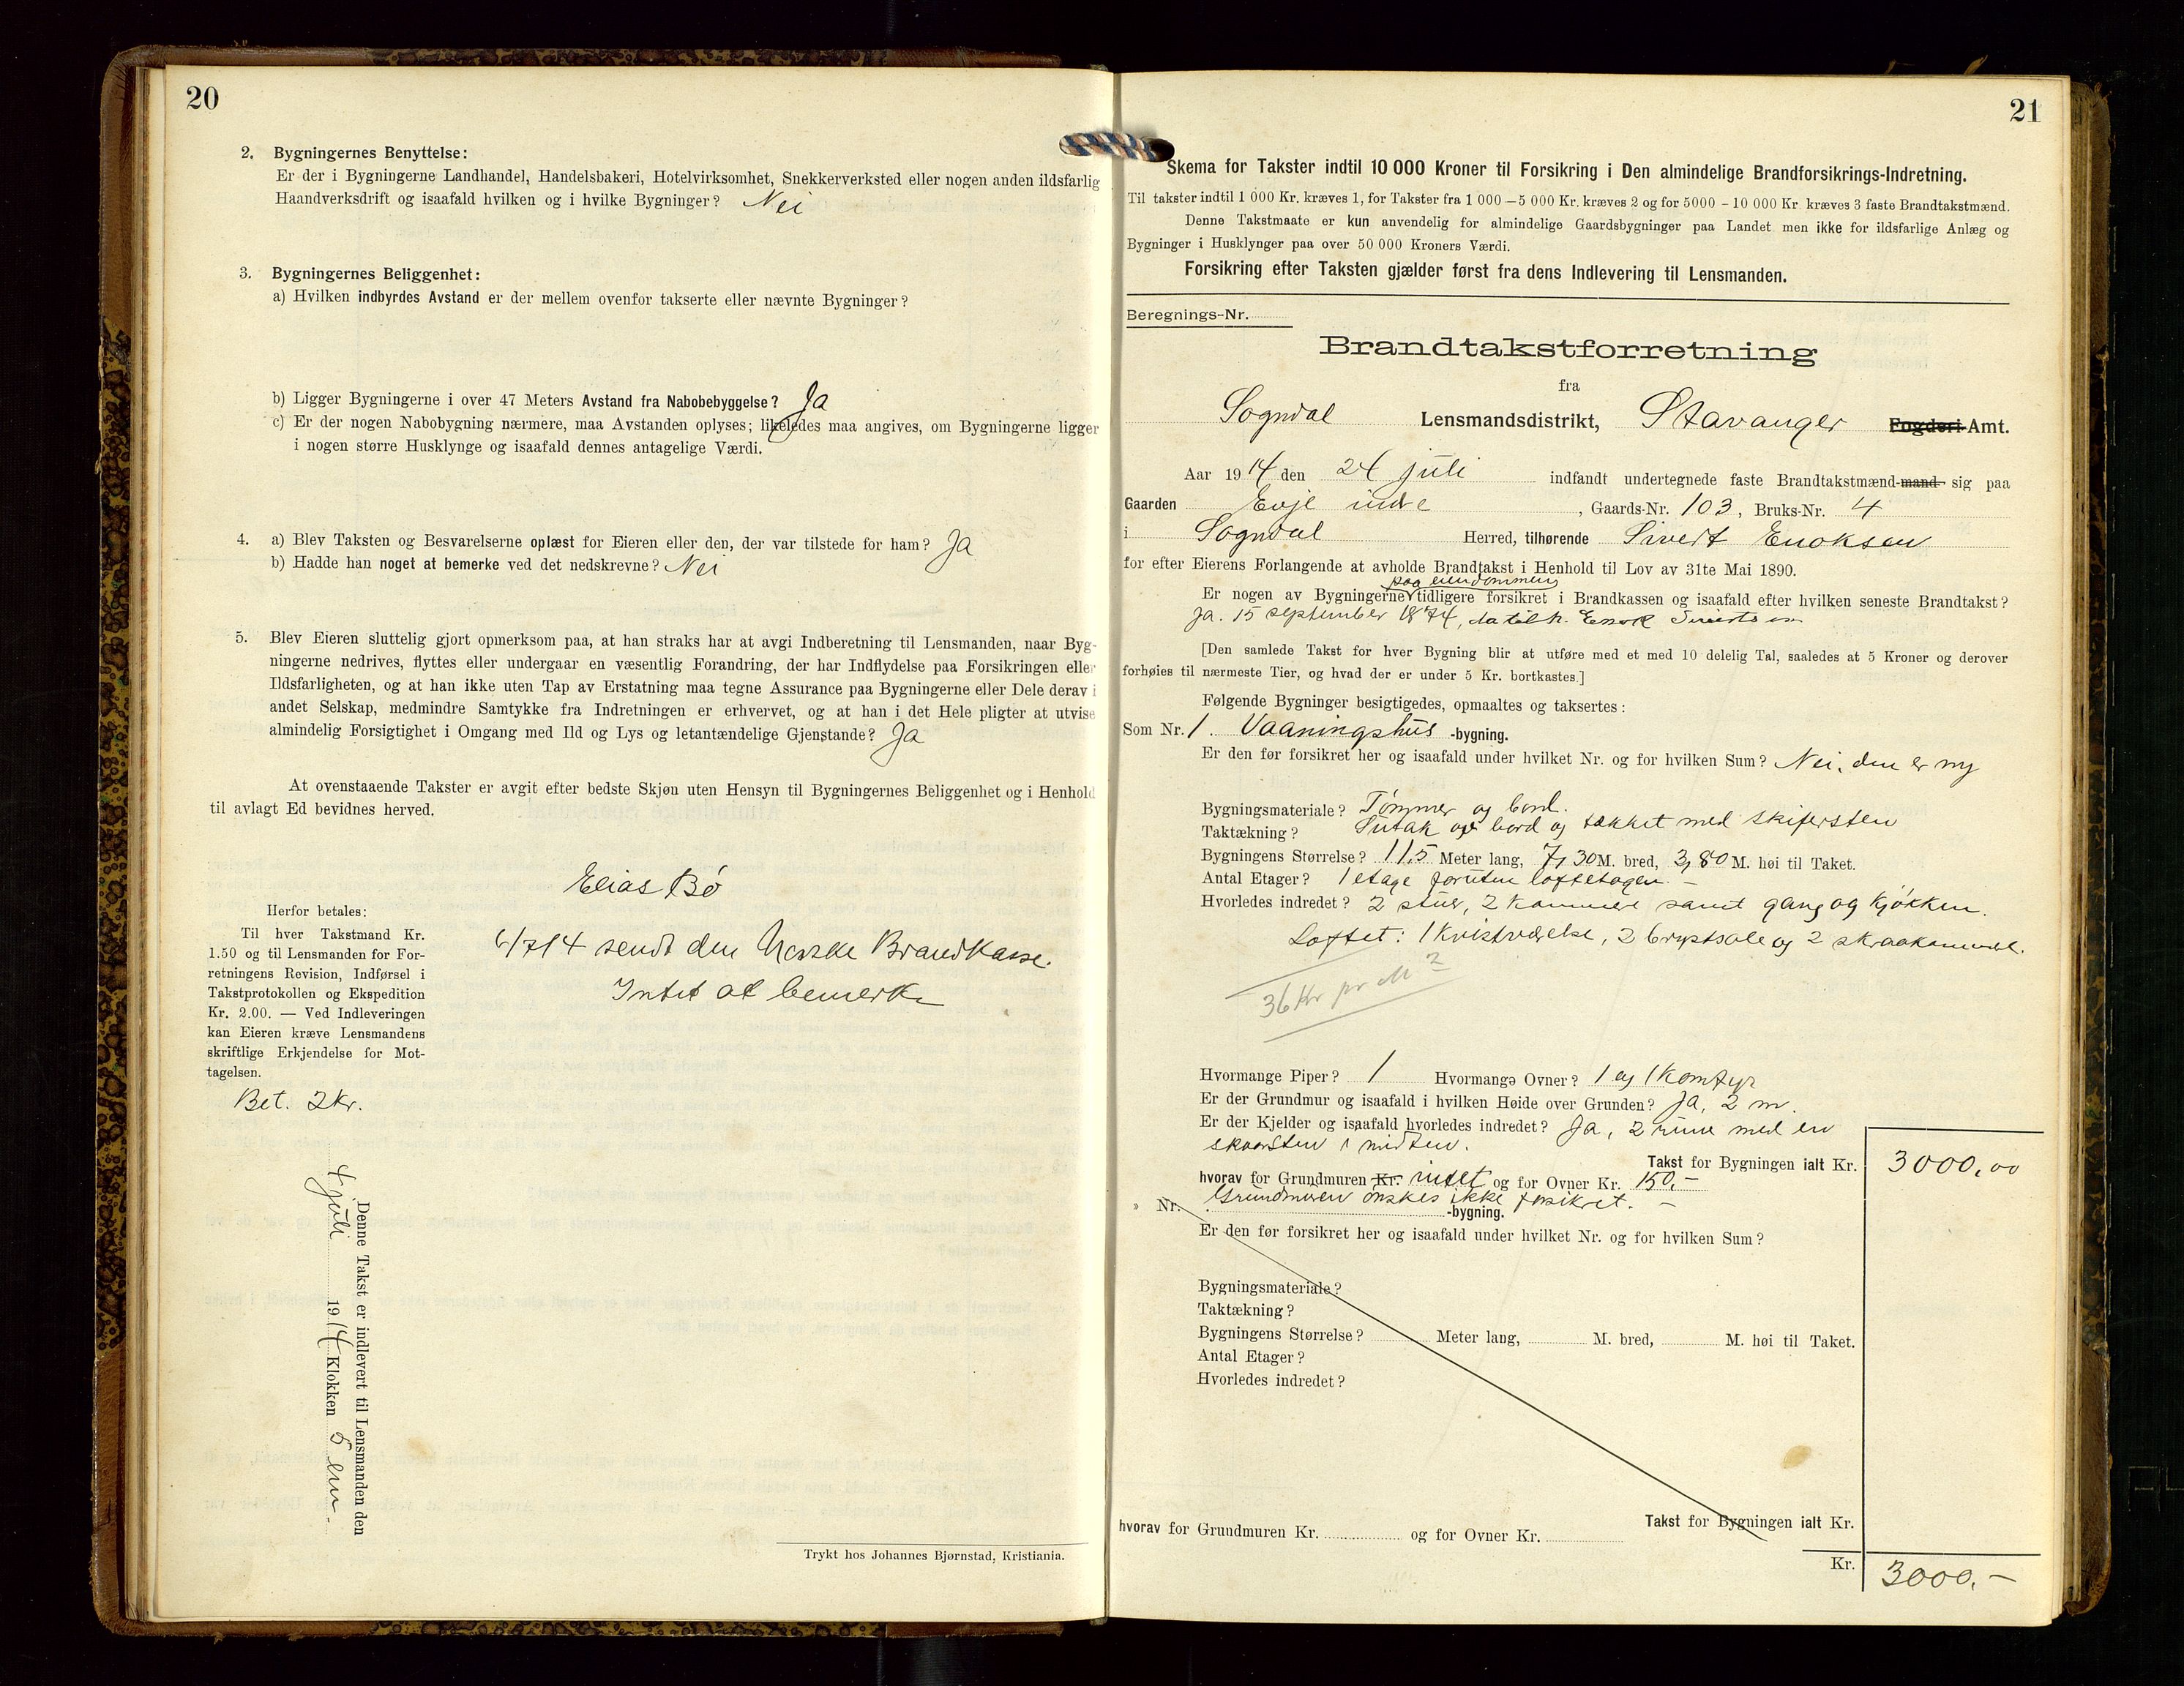 20
2. Bygningernes Benyttelse:
Er der i Bygningerne Landhandel, Handelsbakeri, Hotelvirksomhet, Snekkerverksted eller nogen anden ildsfarlig
Haandverksdrift og isaafald hvilken og i hvilke Bygninger? Nei
3. Bygningernes Beliggenhet:
a) Hvilken indbyrdes Avstand er der mellem ovenfor takserte eller nævnte Bygninger?
b) Ligger Bygningerne i over 47 Meters Avstand fra Nabobebyggelse? Ja
c) Er der nogen Nabobygning nærmere, maa Avstanden oplyses; likeledes maa angives, om Bygningerne ligger
i nogen større Husklynge og isaafald dennes antagelige Værdi.
4. a) Blev Taksten og Besvarelserne oplæst for Eieren eller den, der var tilstede for ham? Ja
b) Hadde han noget at bemerke ved det nedskrevne? Nei
5. Blev Eieren sluttelig gjort opmerksom paa, at han straks har at avgi Indberetning til Lensmanden, naar Byg-
ningerne nedrives, flyttes eller undergaar en væsentlig Forandring, der har Indflydelse paa Forsikringen eller
Ildsfarligheten, og at han ikke uten Tap av Erstatning maa tegne Assurance paa Bygningerne eller Dele derav i
andet Selskap, medmindre Samtykke fra Indretningen er erhvervet, og at han i det Hele pligter at utvise
almindelig Forsigtighet i Omgang med Ild og Lys og letantændelige Gjenstande? Ja
At ovenstaaende Takster er avgit efter bedste Skjøn uten Hensyn til Bygningernes Beliggenhet og i Henhold
til avlagt Ed bevidnes herved.
Elias Bø
6/7 14 sendt den Norske Brandkasse.
Intet at bemerke
Herfor betales:
Til hver Takstmand Kr.
1.50 og til Lensmanden for For-
retningens Revision, Indførsel i
Takstprotokollen og Ekspedition
Kr. 2.00. — Ved Indleveringen
kan Eieren kræve Lensmandens
skriftlige Erkjendelse for Mot-
tagelsen.
Bet. 2 Kr.
Denne Takst er indlevert til Lensmanden den
4 juli 1914 Klokken 5 em.
Trykt hos Johannes Bjørnstad, Kristiania.
21
Skema for Takster indtil 10 000 Kroner til Forsikring i Den almindelige Brandforsikrings-Indretning.
Til takster indtil 1 000 Kr. kræves 1, for Takster fra 1 000 — 5 000 Kr. kræves 2 og for 5000 - 10 000 Kr. kræves 3 faste Brandtakstmænd.
Denne Takstmaate er kun anvendelig for almindelige Gaardsbygninger paa Landet men ikke for ildsfarlige Anlæg og
Bygninger i Husklynger paa over 50 000 Kroners Værdi.
Forsikring efter Taksten gjælder først fra dens Indlevering til Lensmanden.
Beregnings-Nr.
Brandtakstforretning
fra
Sogndal Lensmandsdistrikt, Stavanger Fogderi-Amt.
Aar 1914 den 24 juli indfandt undertegnede faste Brandtakstmænd-mand sig paa
Gaarden Evje indre, Gaards-Nr. 103, Bruks-Nr. 4
i Sogndal Herred, tilhørende Sivert Enoksen
for efter Eierens Forlangende at avholde Brandtakst i Henhold til Lov av 31te Mai 1890.
paa eiendommens
Er nogen av Bygningerne tidligere forsikret i Brandkassen og isaafald efter hvilken seneste Brandtakst?
Ja. 15 september 1874, da tilh. Enok Sivertsen
[Den samlede Takst for hver Bygning blir at utføre med et med 10 delelig Tal, saaledes at 5 Kroner og derover
forhøies til nærmeste Tier, og hvad der er under 5 Kr. bortkastes.]
Følgende Bygninger besigtigedes, opmaaltes og taksertes:
Som Nr. 1. Vaaningshus -bygning.
Er den før forsikret her og isaafald under hvilket Nr. og for hvilken Sum? Nei, den er ny
Bygningsmateriale? Tømmer og bord.
Taktækning? Sutak og bord og tækket med skifersten
Bygningens Størrelse? 11,5 Meter lang, 7,30 M. bred, 3,80 M. høi til Taket.
Antal Etager? 1 etage foruten loftetagen. —
Hvorledes indredet? 2 stuer, 2 kammere samt gang og kjøkken.
Loftet: 1 kvistværelse, 2 brystsale og 2 skraakammere.
36 Kr pr M 2
Hvormange Piper? 1 Hvormange Ovner? 1 og 1 Komfyr
Er der Grundmur og isaafald i hvilken Høide over Grunden? Ja, 2 m.
Er der Kjelder og isaafald hvorledes indredet? Ja, 2 rum med en
skorsten i midten.
Takst for Bygningen ialt Kr. 3000,00
hvorav for Grundmuren Kr. intet og for Ovner Kr. 150,-
Grundmuren ønskes ikke forsikret. —
» Nr. -bygning.
Er den før forsikret her og isaafald under hvilket Nr. og for hvilken Sum?
Bygningsmateriale?
Taktækning?
Bygningens Størrelse? Meter lang, M. bred, M. høi til Taket.
Antal Etager?
Hvorledes indredet?
Takst for Bygningen ialt Kr.
hvorav for Grundmuren Kr. og for Ovner Kr.
Kr. 3000,-